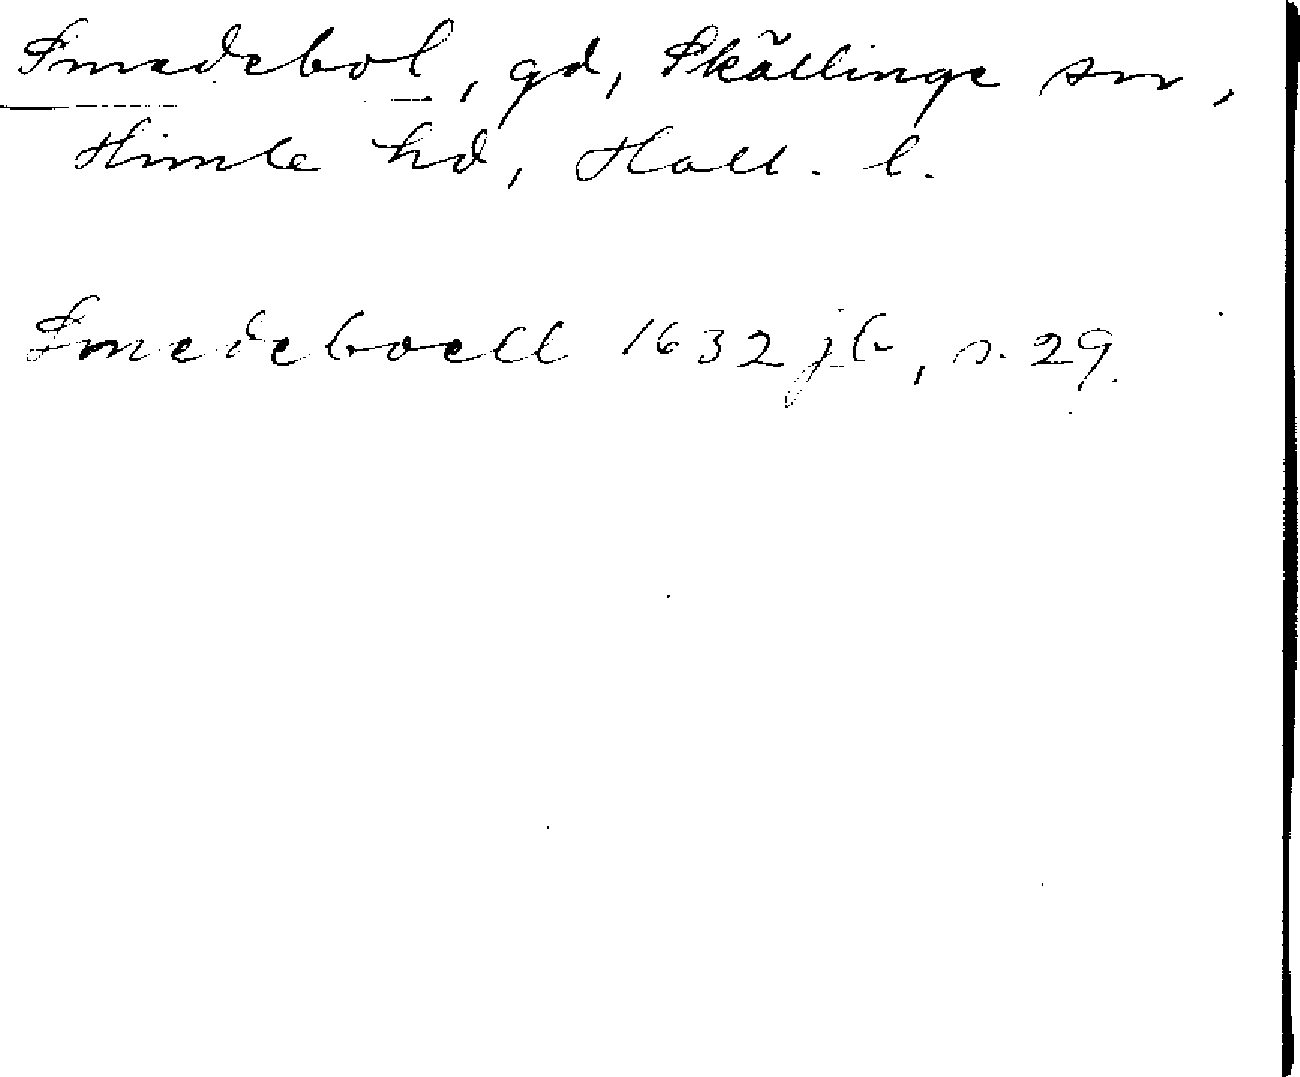 Smedebol, gd, Skällinge sn,
Himle hd, Hall. l.
Smedeboell 1632 jb, s. 29.